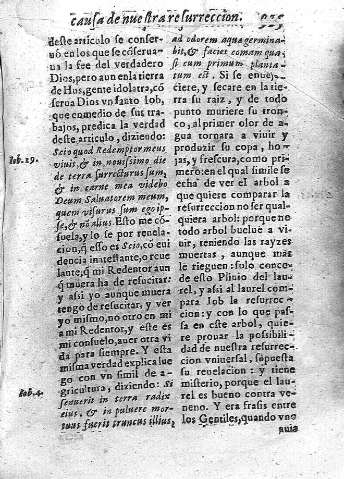 causa de nuestra resurreccion.
deste articulo se conser-
uó en los que se cõseruaua
na la fee del verdadero
Dios, pero aun en la tierra
de Hus, gente idolatra, cõ
seruà Dios vn santo Iob,
que comedio de sus tra-
bajos, predica la verdad
deste articulo, diziendo:
Iob. 19.
Scio quod Redemptor meus
viuit, & in nouissimo die
de terra surrecturus sum,
& in carne mea videbo
Deum Saluatorem meum,
quem visurus sum ego ip-
se, & nõ alius. Esto me cõ-
suela, y lo se por reuela-
cion, q̃ esso es Scio, cõ eui
dencia inatestante, o reue
lante, q̃ mi Redentor aun
q̃ muera ha de resucitar:
y assi yo aunque muera
tengo de resucitar, y ver
yo mismo, no otro en mi
a mi Redentor, y este es
mi consuelo, auer otra vi
da para siempre. Y esta
misma verdad explica lue
go con vn simil de a-
gricultura, diziendo: Si
Iob. 4.
senuerit in terra radix
eius, & in puluere mor-
tuus fuerit truncus illius,
ad odorem aquæ germina
bit, & faciet comam qua-
si cum primum planta-
tum est. Si se enueje-
ciere, y secare en la tier
ra su raiz, y de todo
punto muriere su tron-
co, al primer olor de a-
gua tornara a viuir y
produzir su copa, ho-
jas, y frescura, como pri-
mero: en el qual simile se
echa de ver el arbol a
que quiere comparar la
resurreccion no ser qual-
quiera arbol: porque no
todo arbol buelue a vi-
uir, teniendo las rayzes
muertas, aunque mas
le rieguen: solo conce-
de esto Plinio del laurel,
y assi al laurel com-
para Iob la resurrec-
cion: y con lo que pas-
sa en este arbol, quie-
re prouar la possibili-
dad de nuestra resurrec-
cion vniuersal, supuesta
su reuelacion: y tiene
misterio, porque el lau-
rel es bueno contra ve-
neno. Y era frasis entre
los Gentiles, quando vno
auia